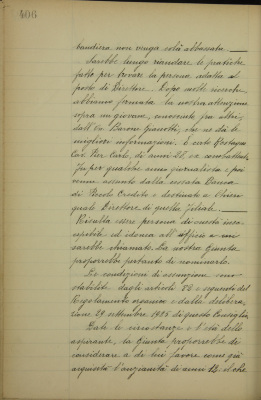 406
bandiera non venga così abbassata
Sarebbe lungo riandare le pratiche
fatte per trovare la persona adatta al
posto di Direttore. Dopo molte ricerche
abbiamo fermata la nostra attenzione
sopra un giovane, conosciuto fra altri,
dall'On. Barone Gianotti, che ne dà le
migliori informazioni. È certo
Cav. Pier Carlo, di anni 28, ex combattente,
fu per qualche anno giornalista e poi
venne assunto dalla cessata Banca
di Piccolo Credito e destinato a Chieri
quale Direttore di quella filiale.
Risulta essere persona di onestà
ed idonea all'ufficio a cui
sarebbe chiamato. La nostra Giunta
proporrebbe pertanto di nominarlo.
Le condizioni di assunzione sono
stabilite dagli articoli 82 e seguenti del
Regolamento organico e dalla delibera-
zione 29 settembre 1925 di questo Consiglio.
Date le circostanze e l'età dello
aspirante, la Giunta proporrebbe di
considerare a di lui favore come già
acquisita l'anzianità di anni 12 il che